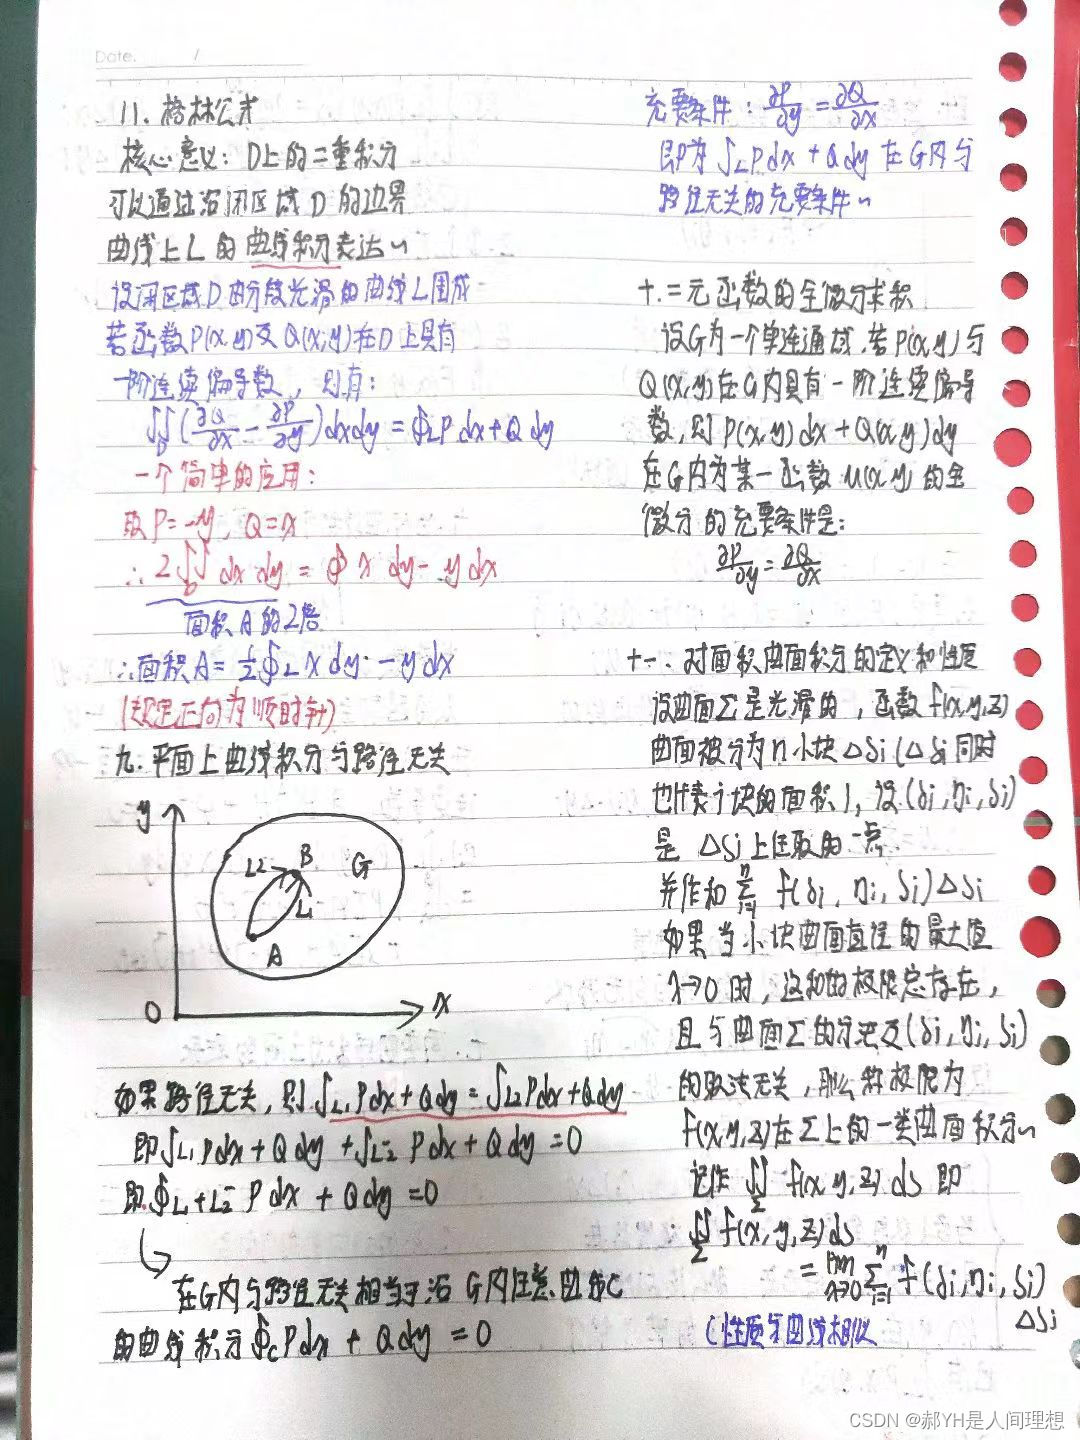 Date. /
11. 格林公式
核心意义：D上的二重积分
可以通过沿闭区域D的边界
曲线上L的曲线积分表达~
设闭区域D由分段光滑的曲线L围成
若函数P(x,y)及Q(x,y)在D上具有
一阶连续偏导数，则有：
∬_D(∂Q/∂x - ∂P/∂y)dxdy = ∮_L P dx + Q dy
一个简单的应用：
取P=-y, Q=x
∴ 2∬_D dx dy = ∮ x dy - y dx
面积A的2倍
∴面积A = 1/2∮_L x dy - y dx
(规定正向为顺时针)
九. 平面上曲线积分与路径无关
y
L2 B G
L1
A
0 x
如果路径无关，则∫_L1 Pdx + Qdy = ∫_L2 Pdx + Qdy
即∫_L1 Pdx + Q dy + ∫_L2⁻ P dx + Q dy = 0
即∮_L1+L2⁻ P dx + Q dy = 0
在G内与路径无关相当于沿G内任意曲线C
的曲线积分∮_C P dx + Q dy = 0
充要条件：∂P/∂y = ∂Q/∂x
即为∫_L P dx + Q dy 在G内与
路径无关的充要条件~
十. 二元函数的全微分求积
设G为一个单连通域，若P(x,y)与
Q(x,y)在G内具有一阶连续偏导
数，则P(x,y)dx + Q(x,y)dy
在G内为某一函数u(x,y)的全
微分的充要条件是：
∂P/∂y = ∂Q/∂x
十一. 对面积曲面积分的定义和性质
设曲面Σ是光滑的，函数f(x,y,z)
曲面被分为n小块△Si (△Si同时
也代表个块的面积)，设(δi,ηi,ζi)
是△Si上任取的一点
并作和 Σ_{i=1}^n f(δi,ηi,ζi)△Si
如果当小块曲面直径的最大值
λ→0时，这和的极限总存在，
且与曲面Σ的分法及(δi,ηi,ζi)
的取法无关，那么称极限为
f(x,y,z)在Σ上的一类曲面积分~
记作 ∬_Σ f(x,y,z) ds 即
∬_Σ f(x,y,z)ds
= lim_{λ→0} Σ_{i=1}^n f(δi,ηi,ζi)
△Si
(性质与曲线相似
CSDN @郝YH是人间理想